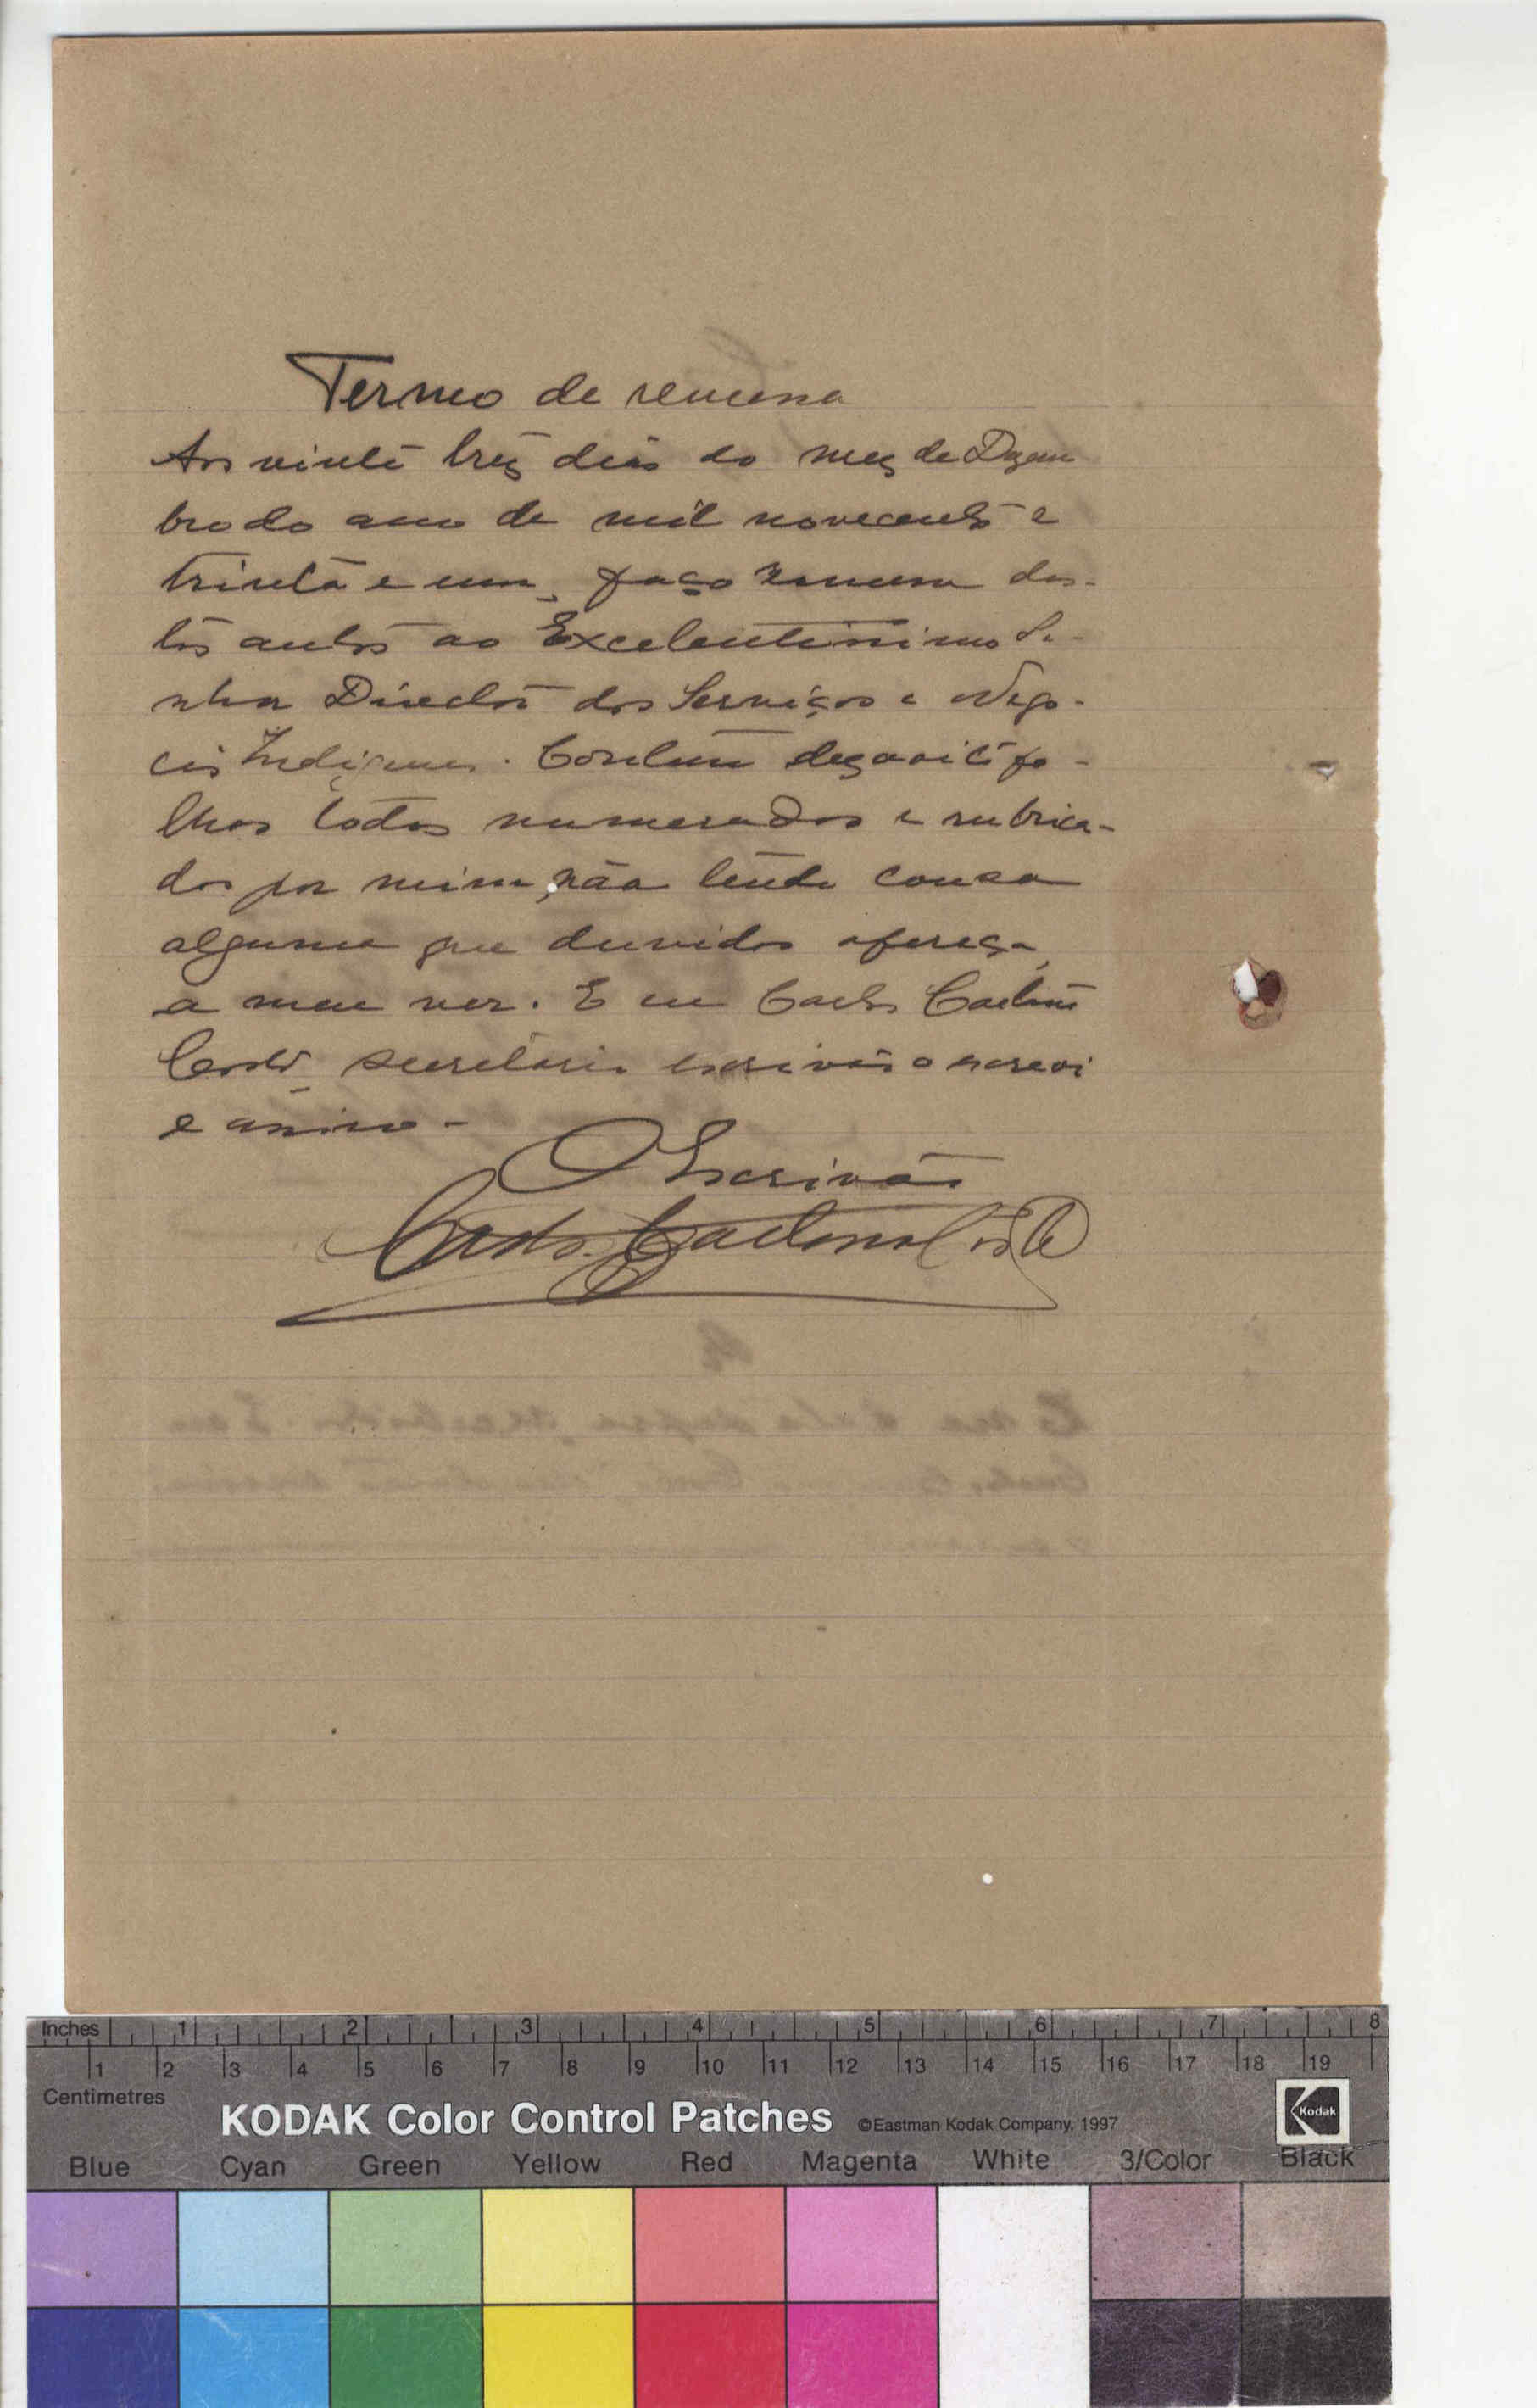 Termo de remessa
Aos vinte três dias do mez de Dezem
bro do ano de mil novecentos e
trinta e um, faço remessa des-
tes autos ao Excelentissimo Se-
nhor Director dos Serviços e Nego-
cios Indigenas. Contem dezoito fo-
lhas todas numeradas e rubrica-
das por mim, não tendo cousa
alguma que duvidas ofereça,
a meu ver. E eu Carlos Caetano
Costa, secretario escrivão o escrevi
e assino -
O Escrivão
Carlos Caetano Costa
Inches 1 2 3 4 5 6 7 8
1 2 3 4 5 6 7 8 9 10 11 12 13 14 15 16 17 18 19
Centimetres
KODAK Color Control Patches ©Eastman Kodak Company, 1997 Kodak
Blue Cyan Green Yellow Red Magenta White 3/Color Black